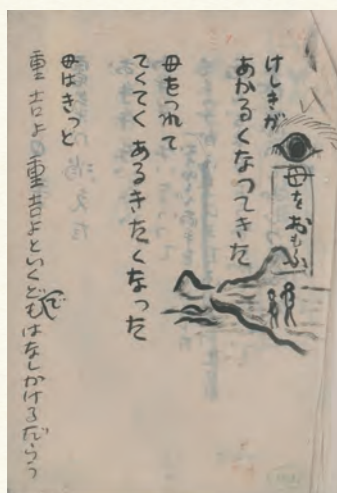 母をおもふ
けしきが
あかるくなってきた
母をつれて
てくてくあるきたくなった
母はきっと
重吉よ重吉よといくどでもはなしかけるだらう